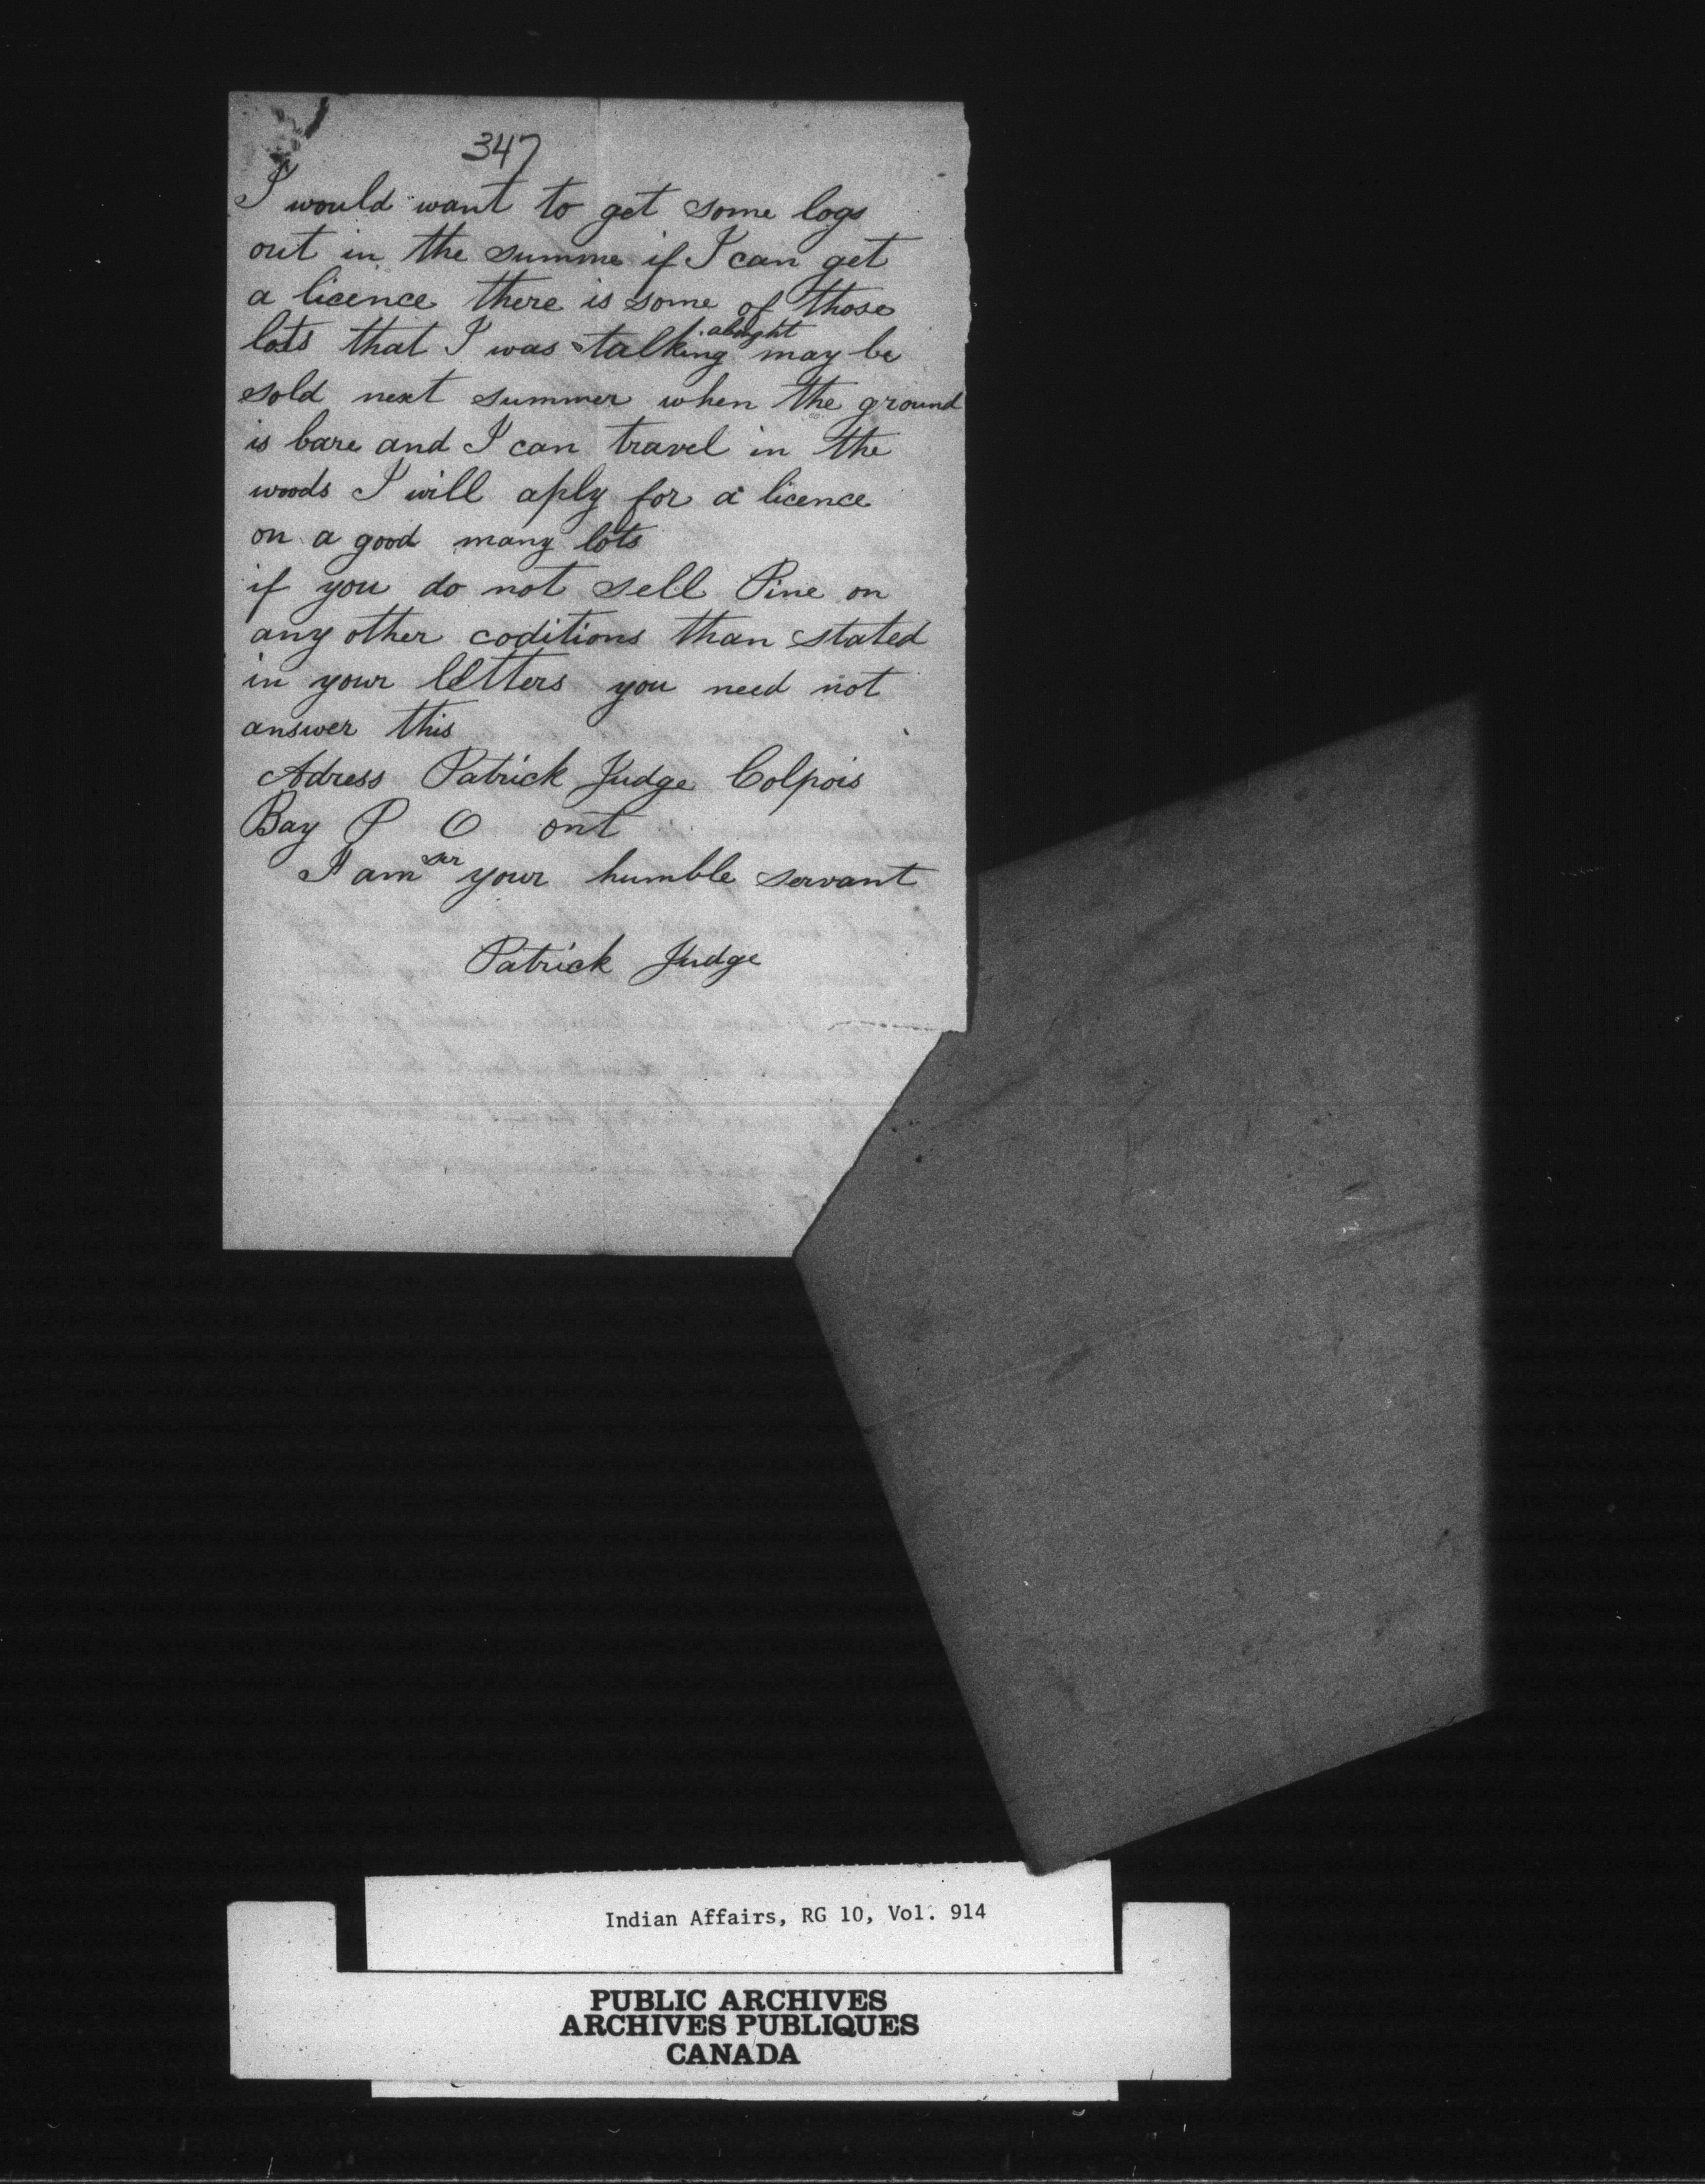 347
I would want to get some logs
out in the summe if I can get
a licence there is some of those
lots that I was talking abught may be
sold next summer when the ground
is bare and I can travel in the
woods I will aply for a licence
on a good many lots
if you do not sell Pine on
any other coditions than stated
in your letters you need not
answer this
Adress Patrick Judge Colpois
Bay P O ont
I am ser your humble servant
Patrick Judge
Indian Affairs, RG 10, Vol. 914
PUBLIC ARCHIVES
ARCHIVES PUBLIQUES
CANADA